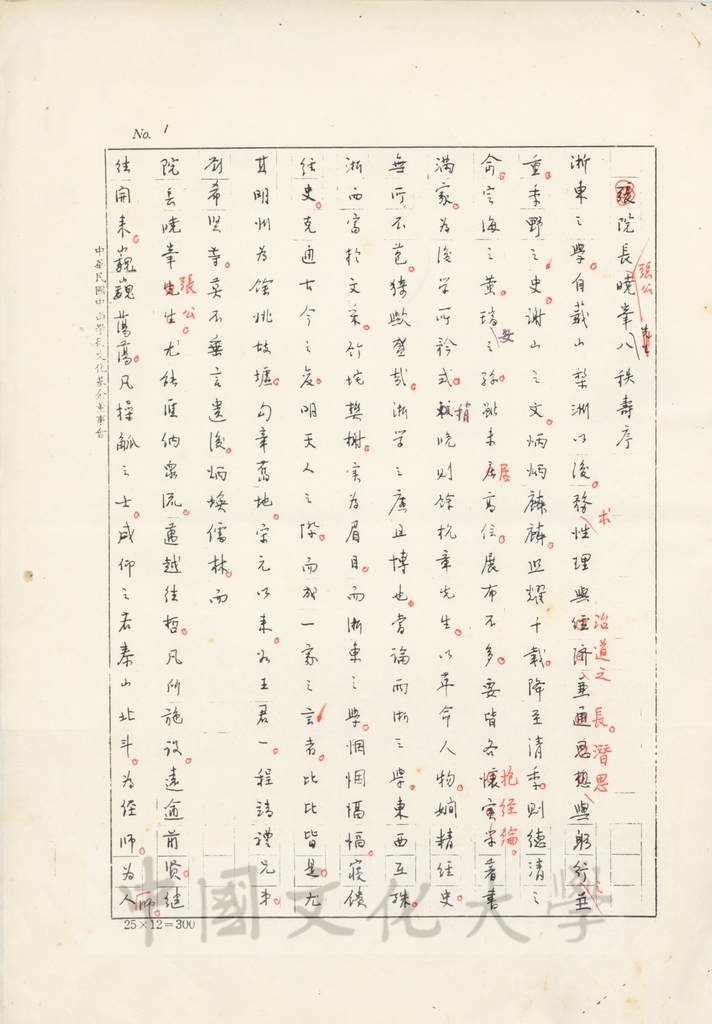 No. 1
張院長曉峯八秩壽序
張公
先生
浙東之學。自蕺山梨洲以後。務性理與經濟並通思想與躬行並
术 治道之長。潛思
重。季野之史。謝山之文。炳炳麟麟。照耀千載。降至清季。則德清之
俞。定海之黃。瑞之孫。雖未居高位。展布不多。要皆各懷 著書
安 居 抱經綸。
滿家。為後學所矜式。較晚則餘杭章先生。以革命人物。嫻精經史。
稍
無所不苞。猗歟盛哉。浙學之廣且博也。嘗論兩浙之學。東西互殊。
浙西富於文采。竹垞樊榭。实為眉目。而浙東之學。悃悃愊愊。寝饋
經史。克通古今之変。明天人之際。而成一家之言者。比比皆是。尤
其明州為餘姚故墟。句章舊地。宋元以来。如王君一。程靖禮兄弟。
劉希賢等。莫不垂言遺後。炳煥儒林。而
院長曉峯先生。尤能匯納眾流。邁越往哲。凡所施設。遠逾前賢。繼
張公。
往開来。巍巍蕩蕩。凡操觚之士。咸仰之若泰山北斗。為經師。為人師。
25×12=300
中華民國中山學術文化基金董事會
中國文化大學